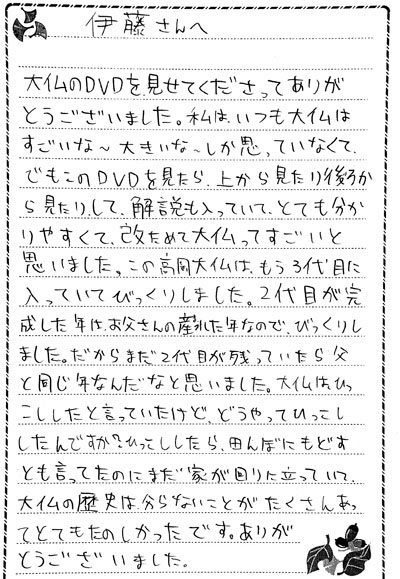 伊藤さんへ
大仏のDVDを見せてくださってありが
とうございました。私は、いつも大仏は
すごいな～大きいな～しか思っていなくて、
でもこのDVDを見たら、上から見たり後ろか
ら見たりして、解説も入っていて、とても分か
りやすくて、改ためて大仏ってすごいと
思いました。この高岡大仏は、もう3代目に
入っていてびっくりしました。2代目が完
成した年は、お父さんの産れた年なので、びっくりし
ました。だからまだ2代目が残っていたら父
と同じ年なんだなと思いました。大仏は、ひっ
こししたと言っていたけど、どうやってひっこし
したんですか?ひっこししたら、田んぼにもどす
とも言ってたのにまだ家が回りに立っていて、
大仏の歴史は、分らないことがたくさんあっ
てとてもたのしかったです。ありが
とうございました。